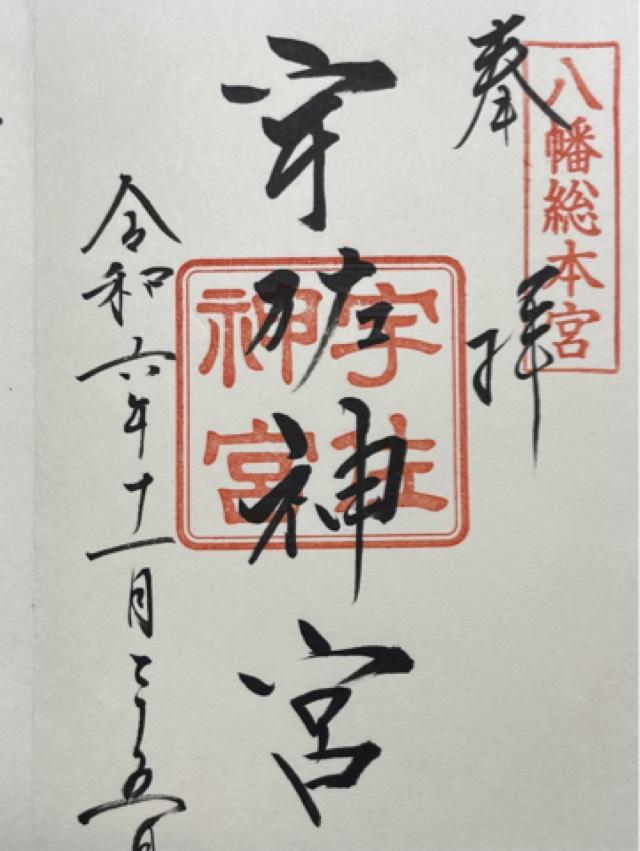 八幡総本宮
奉拝
宇佐神宮
宇佐
神宮
令和六年十一月二十五日